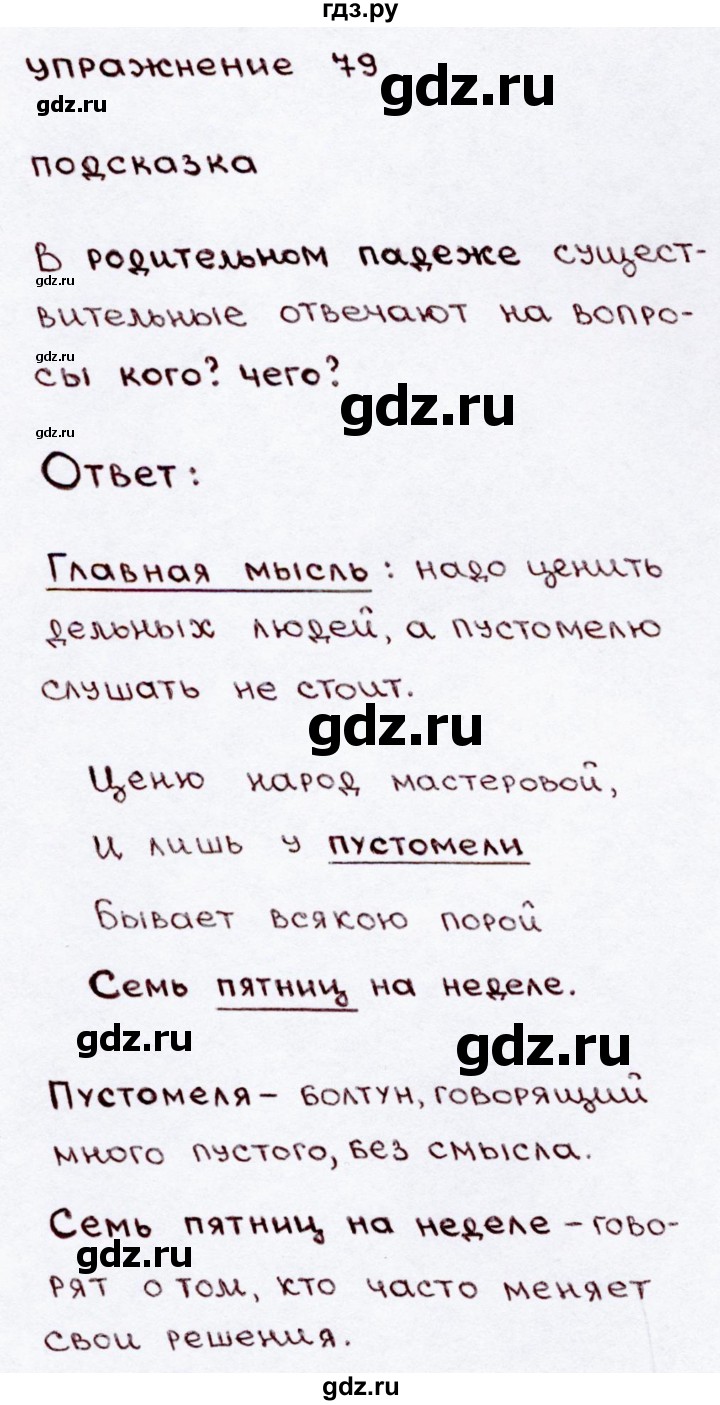 гдз.ру
упражнение 79
gdz.ru
gdz.ru
подсказка
В родительном падеже сущест-
gdz.ru
вительные отвечают на вопро-
gdz.ru
сы кого? чего?
gdz.ru
gdz.ru
Ответ:
Главная мысль: надо ценить
дельных людей, а пустомелю
слушать не стоит.
gdz.ru
Ценю народ мастеровой,
И лишь у пустомели
Бывает всякою порой
Семь пятниц на неделе.
gdz.ru
gdz.ru
Пустомеля – болтун, говорящий
много пустого, без смысла.
Семь пятниц на неделе – гово-
gdz.ru
рят о том, кто часто меняет
свои решения.
gdz.ru